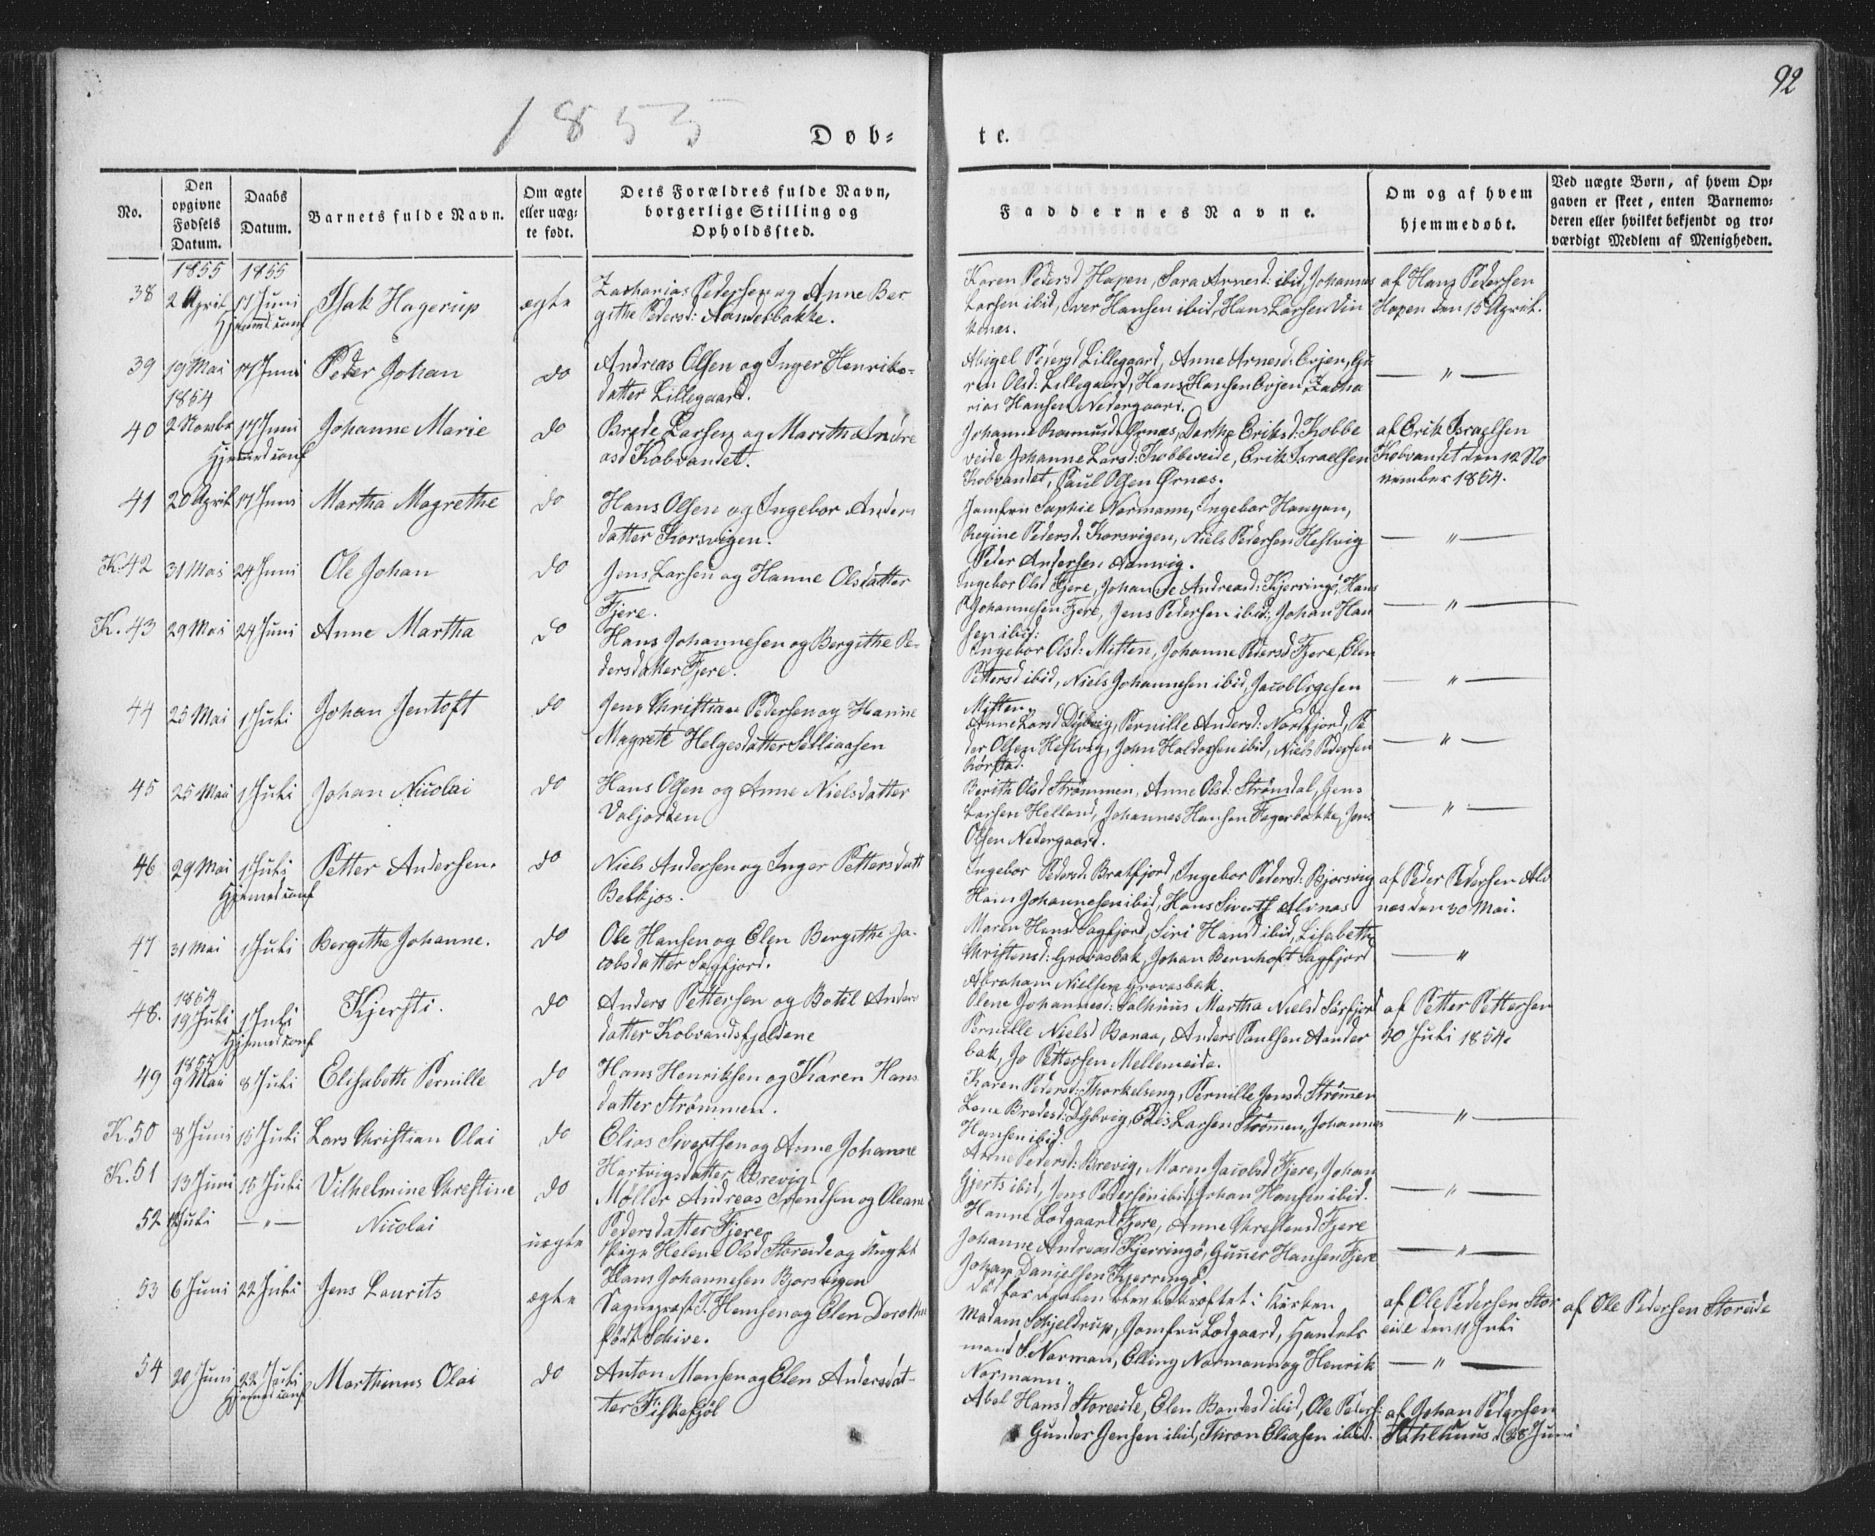 92
1855
Døb-
te.
No.
Den opgivne Fødsels Datum.
Daabs Datum.
Barnets fulde Navn.
Om ægte eller uægte født.
Dets Forældres fulde Navn, borgerlige Stilling og Opholdssted.
Faddernes Navne.
Om og af hvem hjemmedøbt.
Ved uægte Børn, af hvem Opgaven er skeet, enten Barnemoderen eller hvilket bekjendt og troværdigt Medlem af Menigheden.
1855 1855
38 2 April 17 Juni Isak Hagerup ægte Zacharias Pedersen og Anne Ber
Hjemmed conf githe Pedersd: Aanderbakke.
Karen Pedersd Hopen, Sara Arnesd: ibid, Johannes
Larsen ibid, Hansen ibid, Hans Larsen Vin
af Hans Pedersen
Hopen den 15 April.
39 19 Mai 17 Juni Peder Johan do Andreas Olsen og Inger Henriks-
datter Lillegaard.
Pedersd Lillegaard, Anne Arnesd: Evjen, Gu
Olsd: Lillegaard, Hans Hansen Evjen, Zacha
rias Hansen Nedergaard.
— " —
1854
40 2 Novbr 17 Juni Johanne Marie do Brede Larsen og Marith Andre
Hjemmed conf asd Kobvandet.
Johanne Rasmusd Ørnæs, Dorthe Eriksd: Kobbe
veide Johanne Larsd: Kobbeveide, Erik Israelsen
Kobvandet, Paul Olsen Ørnæs.
af Erik Israelsen
Kobvandet den 12 No
vember 1854.
41 20 April 17 Juni Martha Magrethe do Hans Olsen og Ingebor Anders
datter Korsvigen.
Jomfru Sophie Normann, Ingebor Haugan,
Regine Pedersd. Korsvigen, Niels Pedersen Hestvig
Peder Andersen
— " —
K. 42 31 Mai 24 Juni Ole Johan do Jens Larsen og Hanne Olsdatter
Fjere.
Ingebor Olsd Fjere, Johanne Andreasd: Kjerringø, Hans
Johannesen Fjere, Jens Pedersen ibid, Johan Han
sen ibid:
— " —
K. 43 29 Mai 24 Juni Anne Martha do Hans Johannesen og Bergithe Pe-
dersdatter Fjere.
Ingebor Olsd: Misten, Johanne Pedersd Fjere, Elen
Pettersd ibid, Niels Johannesen ibid, Jacob
Misten.
— " —
44 25 Mai 1 Juli Johan Jentoft do Jens Christian Pedersen og Hanne
Magrete Helgesdatter Selliaasen
Anne Larsd Dybvig, Pernille Andersd: Nordfjord, Pe
der Olsen Hestvig, John Haldorsen ibid, Niels Pedersen
Korstad.
— " —
45 25 Mai 1 Juli Johan Nicolai do Hans Olsen og Anne Nielsdatter
Valjorden
Berith Olsd Strømmen, Anne Olsd: Strømdal, Jens
Larsen Helland, Johannes Hansen Fagerbakke, Jens
Olsen Nedergaard.
— " —
46 29 Mai 1 Juli Petter Andersen. do Niels Andersen og Inger Pettersdatt
Hjemmed conf
Ingebor Pedersd: Bratfjord, Ingebor Pedersd: Bjorsvig
Hans Johannesen ibid, Hans Sivertsen Alvnæs
af Peder Pedersen Alv
næs den 30 Mai.
47 31 Mai 1 Juli Bergithe Johanne. do Ole Hansen og Elen Bergithe Ja-
cobsdatter Sagfjord.
Maren Hansd Sagfjord, Siri Hansd ibid, Lisabeth
Christensd: Grovasbak, Johan Bernhoft Sagfjord
Abraham Nielsen Grovasbak.
— " —
1854
48. 19 Juli 1 Juli Kjersti. do Anders Pettersen og Botel Anders
Hjemmed conf datter Kobvandsfjeldene
Olene Johannesd: Martha Nielsd Sørfjord
Pernille Nielsd Bonaa, Anders Paulsen Aander
bak, Jo Pettersen Melleneide.
af Petter Pettersen
20 Juli 1854.
1855
49 9 Mai 8 Juli Elisabeth Pernille do Hans Henriksen og Karen Hans
datter Strømmen.
Karen Pedersd: Thorkelseng, Pernille Jensd: Strømmen
Lene Bredesd: Dybvig, Larsen Strømmen, Johannes
Hansen ibid.
— " —
K. 50 8 Juni 15 Juli Lars Christian Olai do Elias Sivertsen og Anne Johanne
Hartvigsdatter Brevig.
Anne Pedersd: Brevig, Maren Jacobsd Fjere, Johan
Gjerts ibid, Jens Pedersen ibid, Johan Hansen ibid.
— " —
K. 51 13 Juni 15 Juli Vilhelmine Christine do Møller Andreas Svendsen og Oleane
Pedersdatter Fjere
Hanne Lodgaard Fjere, Anne Christensd Fjere
Johanne Andreasd Kjerringø, Gunner Hansen Fjere
Johan Danielsen Kjerringø.
— " —
52 Juli — " — Nicolai uægte Pige Helene Olsd Storeide og Ungkl
Hans Johannesen Bjorsvigen
Daaben blev bekræftet i Kirken
af Ole Pedersen Stor
eide den 11 Juli
af Ole Pedersen Storeide
53 6 Juni 22 Juli Jens Laurits ægte Sognepræst T. Hemsen og Elen Dorothea
født Schive.
Madam Schjeldrup, Jomfru Lodgaard, Handels
mand S. Norman, Elling Normann og Henrik
Normann.
— " —
54 20 Juni 22 Juli Marthinus Olai do Anton Monsen og Elen Andersdat-
Hjemmed conf ter Fiskefjøl
Abel Hansd Storeide, Elen Bendesd ibid, Ole Peders:
Gunder Jensen ibid, Thron Eliasen ibid.
af Johan Pedersen
28 Juni